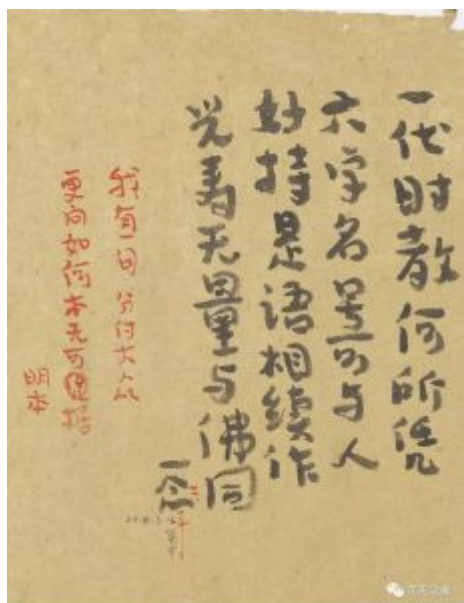 一代时教何所凭
六字名号可与人
妙持是语相续作
光寿无量与佛同
一念
我有一句 分付大众
更问如何本无可据
明本